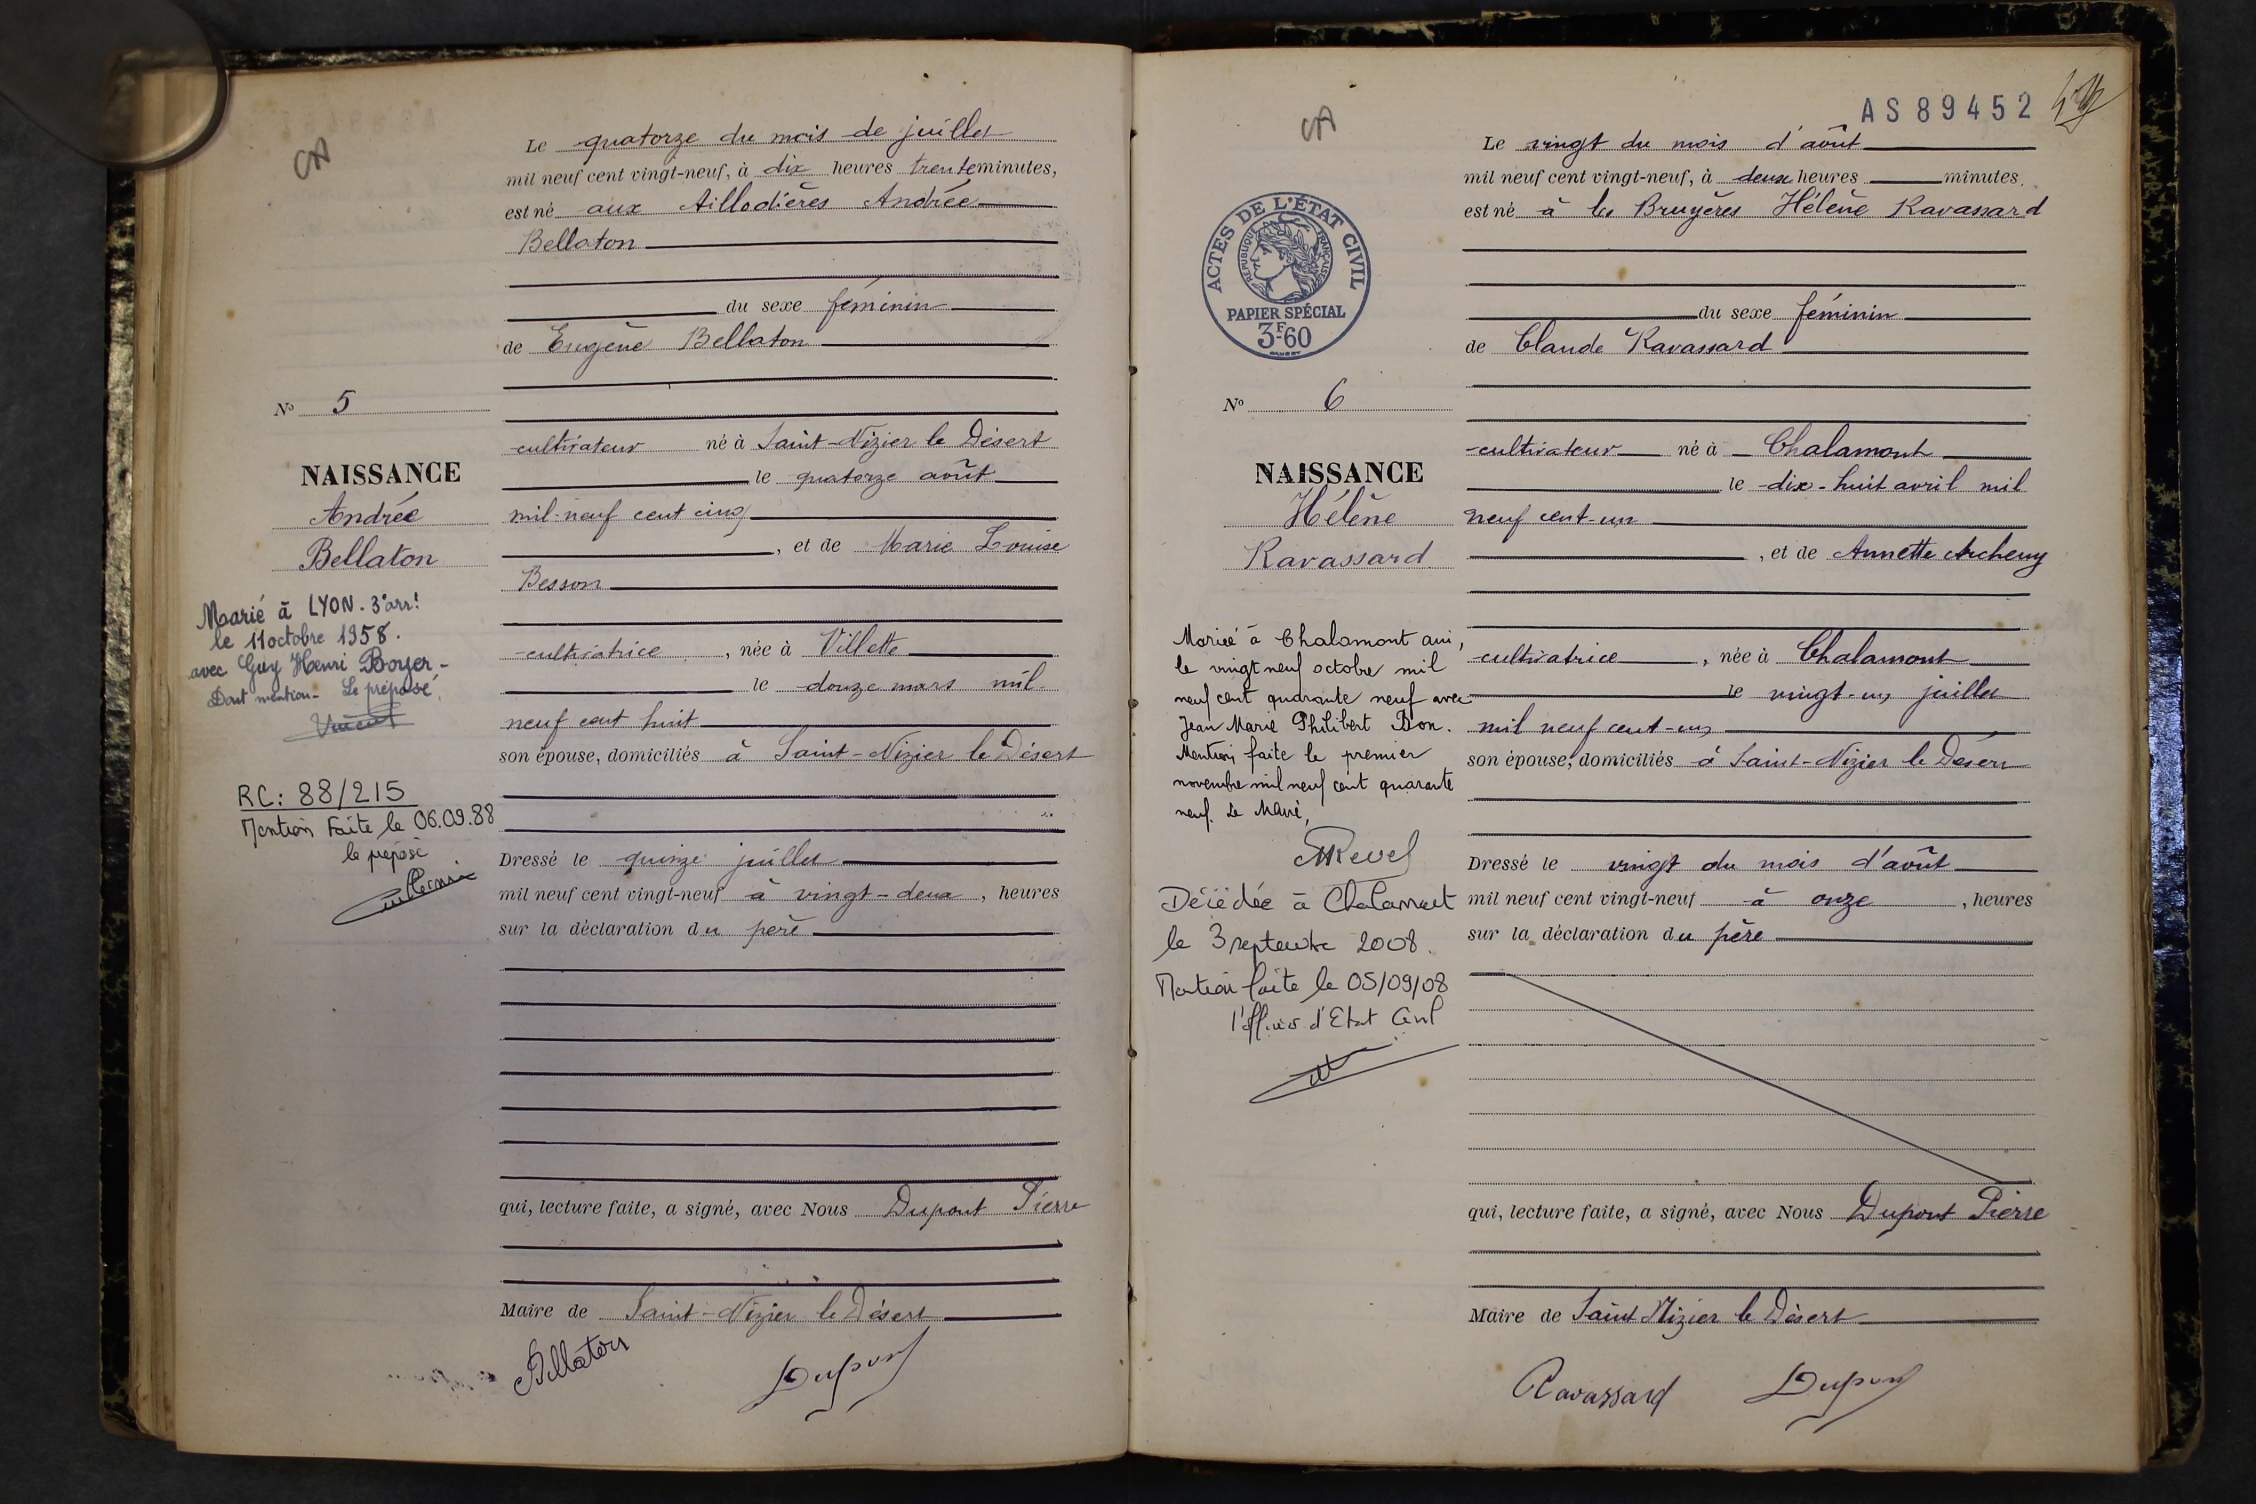 Le quatorze du mois de juillet
mil neuf cent vingt-neuf, à dix heures trente minutes,
est né aux Aillodières Andrée
Bellaton
du sexe féminin
de Eugène Bellaton
No 5
cultivateur né à Saint-Nizier le Désert
NAISSANCE
le quatorze août
Andrée
mil neuf cent cinq
Bellaton
, et de Marie Louise
Besson
Marié à LYON. 3e arrt
le 11 octobre 1958.
avec Guy Henri Boyer -
Dont mention - Le préposé,
Vincent
cultivatrice, née à Villette
le douze mars mil
neuf cent huit
son épouse, domiciliés à Saint-Nizier le Désert
RC: 88/215
Mention Faite le 06.09.88
le préposé
Dressé le quinze juillet
mil neuf cent vingt-neuf à vingt-deux, heures
sur la déclaration du père
qui, lecture faite, a signé, avec Nous Dupont Pierre
Maire de Saint-Nizier le Désert
Bellaton Dupont
AS89452
Le vingt du mois d'août
mil neuf cent vingt-neuf, à deux heures minutes,
est né à les Bruyères Hélène Ravassard
ACTES DE L'ÉTAT CIVIL
RÉPUBLIQUE FRANÇAISE
PAPIER SPÉCIAL
3F60
du sexe féminin
de Claude Ravassard
No 6
cultivateur né à Chalamont
NAISSANCE
le dix-huit avril mil
Hélène
neuf cent-un
Ravassard
, et de Annette
cultivatrice, née à Chalamont
le vingt-un juillet
mil neuf cent-un
son épouse, domiciliés à Saint-Nizier le Désert
Mariée à Chalamont ain,
le vingt neuf octobre mil
neuf cent quarante neuf avec
Jean Marie Philibert Bon.
Mention faite le premier
novembre mil neuf cent quarante
neuf. Le Maire,
Revel
Décédée à Chalamont
le 3 septembre 2008.
Mention faite le 05/09/08
l'officier d'Etat Civil
Dressé le vingt du mois d'août
mil neuf cent vingt-neuf à onze, heures
sur la déclaration du père
qui, lecture faite, a signé, avec Nous Dupont Pierre
Maire de Saint Nizier le Désert
Ravassard Dupont